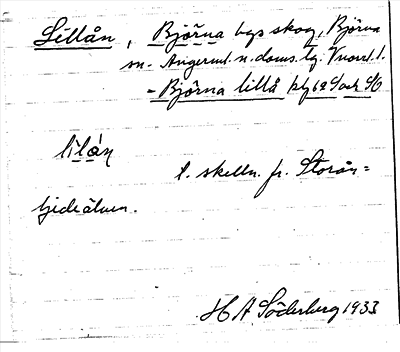 Lillån, Björna bys skog, Björna
sn. Ångerml. n. doms. tg. Vnorrl. l.
- Björna lillå
lilån
t. skelln. fr. Storån=
gideälven.
H A Söderberg 1933